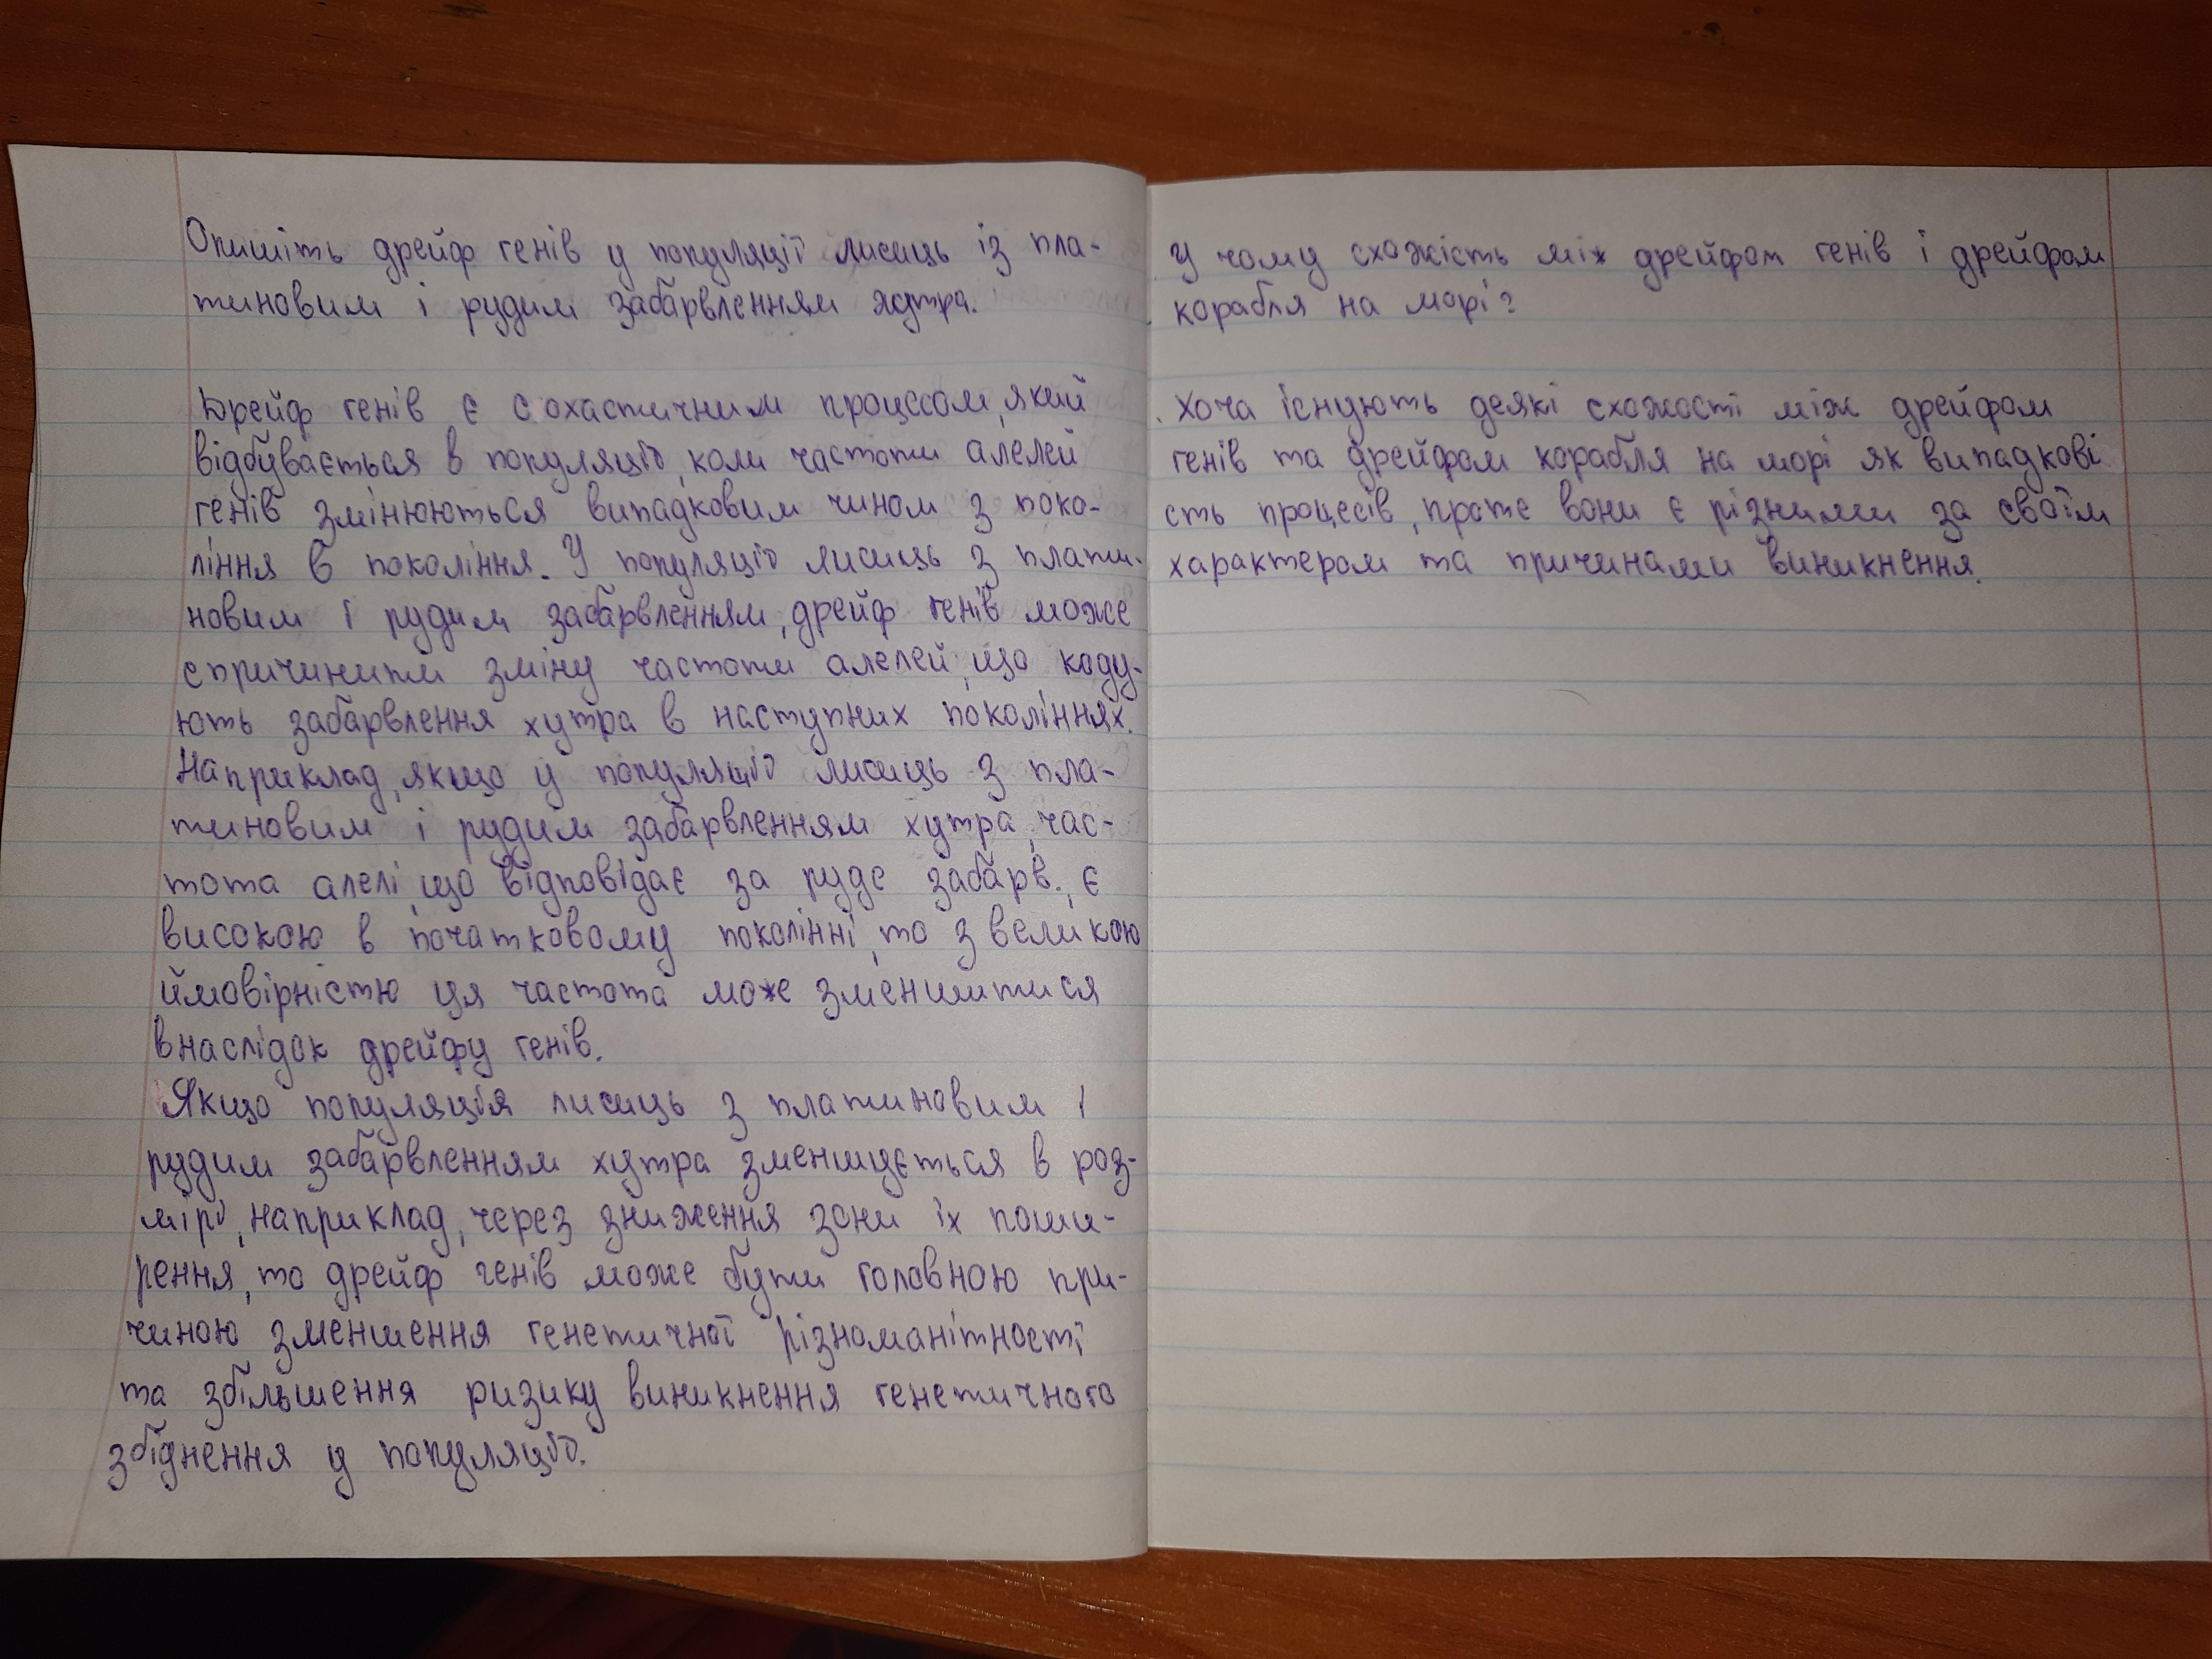 Опишіть дрейф генів у популяції лисиць із пла-
тиновим і рудим забарвленням хутра.
Дрейф генів є сохастичним процссом, який
відбувається в популяції, коли частоти алелей
генів змінюються випадковим чином з поко-
ління в покоління. У популяції лисиць з плати-
новим і рудим забарвленням, дрейф генів може
спричинити зміну частоти алелей, що коду-
ють забарвлення хутра в наступних поколіннях.
Наприклад, якщо у популяції лисиць з пла-
тиновим і рудим забарвленням хутра, час-
тота алелі, що відповідає за руде забарв., є
високою в початковому поколінні, то з великою
ймовірністю ця частота може зменшитися
внаслідок дрейфу генів.
Якщо популяція лисиць з платиновим і
рудим забарвленням хутра зменшується в роз-
мірі, наприклад, через зниження зони їх поши-
рення, то дрейф генів може бути головною при-
чиною зменшення генетичної різноманітності
та збільшення ризику виникнення генетичного
збіднення у популяції.
У чому схожість між дрейфом генів і дрейфом
корабля на морі?
Хоча існують деякі схожості між дрейфом
генів та дрейфом корабля на морі як випадкові
сть процесів, проте вони є різними за своїм
характером та причинами виникнення.